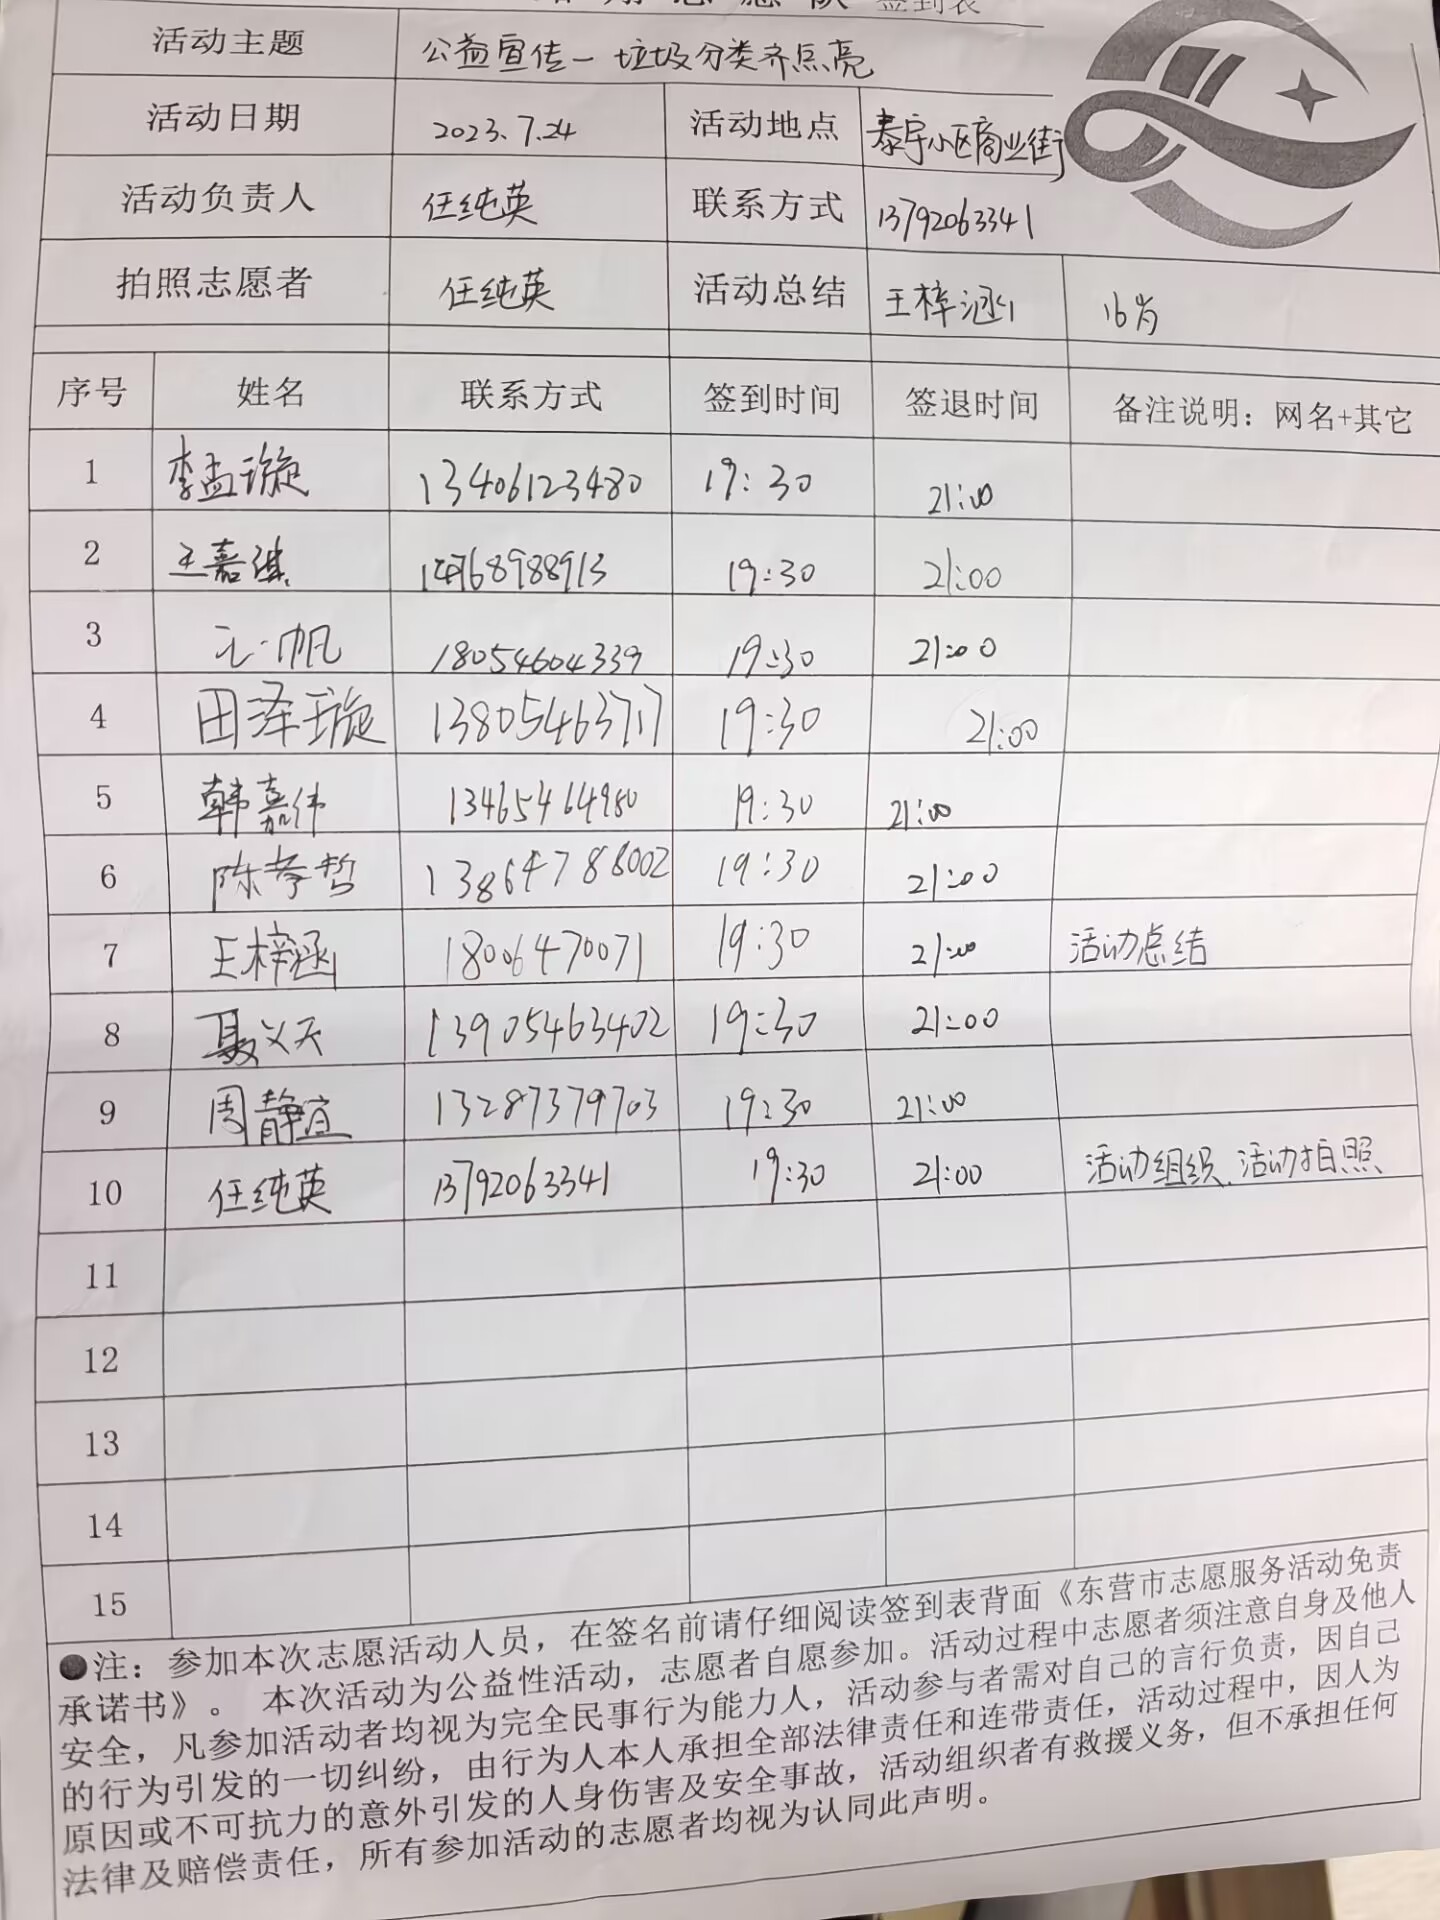 志愿队 签到表
活动主题 公益宣传—垃圾分类齐点亮
活动日期 2023.7.24 活动地点 泰宇小区商业街
活动负责人 任纯英 联系方式 13792063341
拍照志愿者 任纯英 活动总结 王梓涵 16岁
序号 姓名 联系方式 签到时间 签退时间 备注说明：网名+其它
1 李孟璇 13406123480 19:30 21:00
2 王嘉琪 19:30 21:00
3 王一帆 18054604339 19:30 21:00
4 田泽璇 13805463717 19:30 21:00
5 韩嘉伟 13465464980 19:30 21:00
6 陈孝哲 13864788002 19:30 21:00
7 王梓涵 18006470071 19:30 21:00 活动总结
8 聂义天 13905463402 19:30 21:00
9 周静宜 13287379703 19:30 21:00
10 任纯英 13792063341 19:30 21:00 活动组织、活动拍照
11
12
13
14
15
●注：参加本次志愿活动人员，在签名前请仔细阅读签到表背面《东营市志愿服务活动免责
承诺书》。 本次活动为公益性活动，志愿者自愿参加。活动过程中志愿者须注意自身及他人
安全，凡参加活动者均视为完全民事行为能力人，活动参与者需对自己的言行负责，因自己
的行为引发的一切纠纷，由行为人本人承担全部法律责任和连带责任，活动过程中，因人为
原因或不可抗力的意外引发的人身伤害及安全事故，活动组织者有救援义务，但不承担任何
法律及赔偿责任，所有参加活动的志愿者均视为认同此声明。